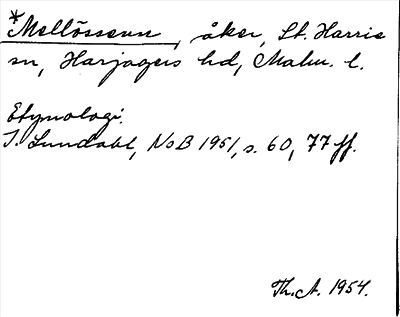 *Mellössenn, åker, St. Harrie
sn, Harjagers hd, Malm. l.
Etymologi:
I. Lundahl, NoB 1951, s. 60, 77 ff.
Th. A. 1954.